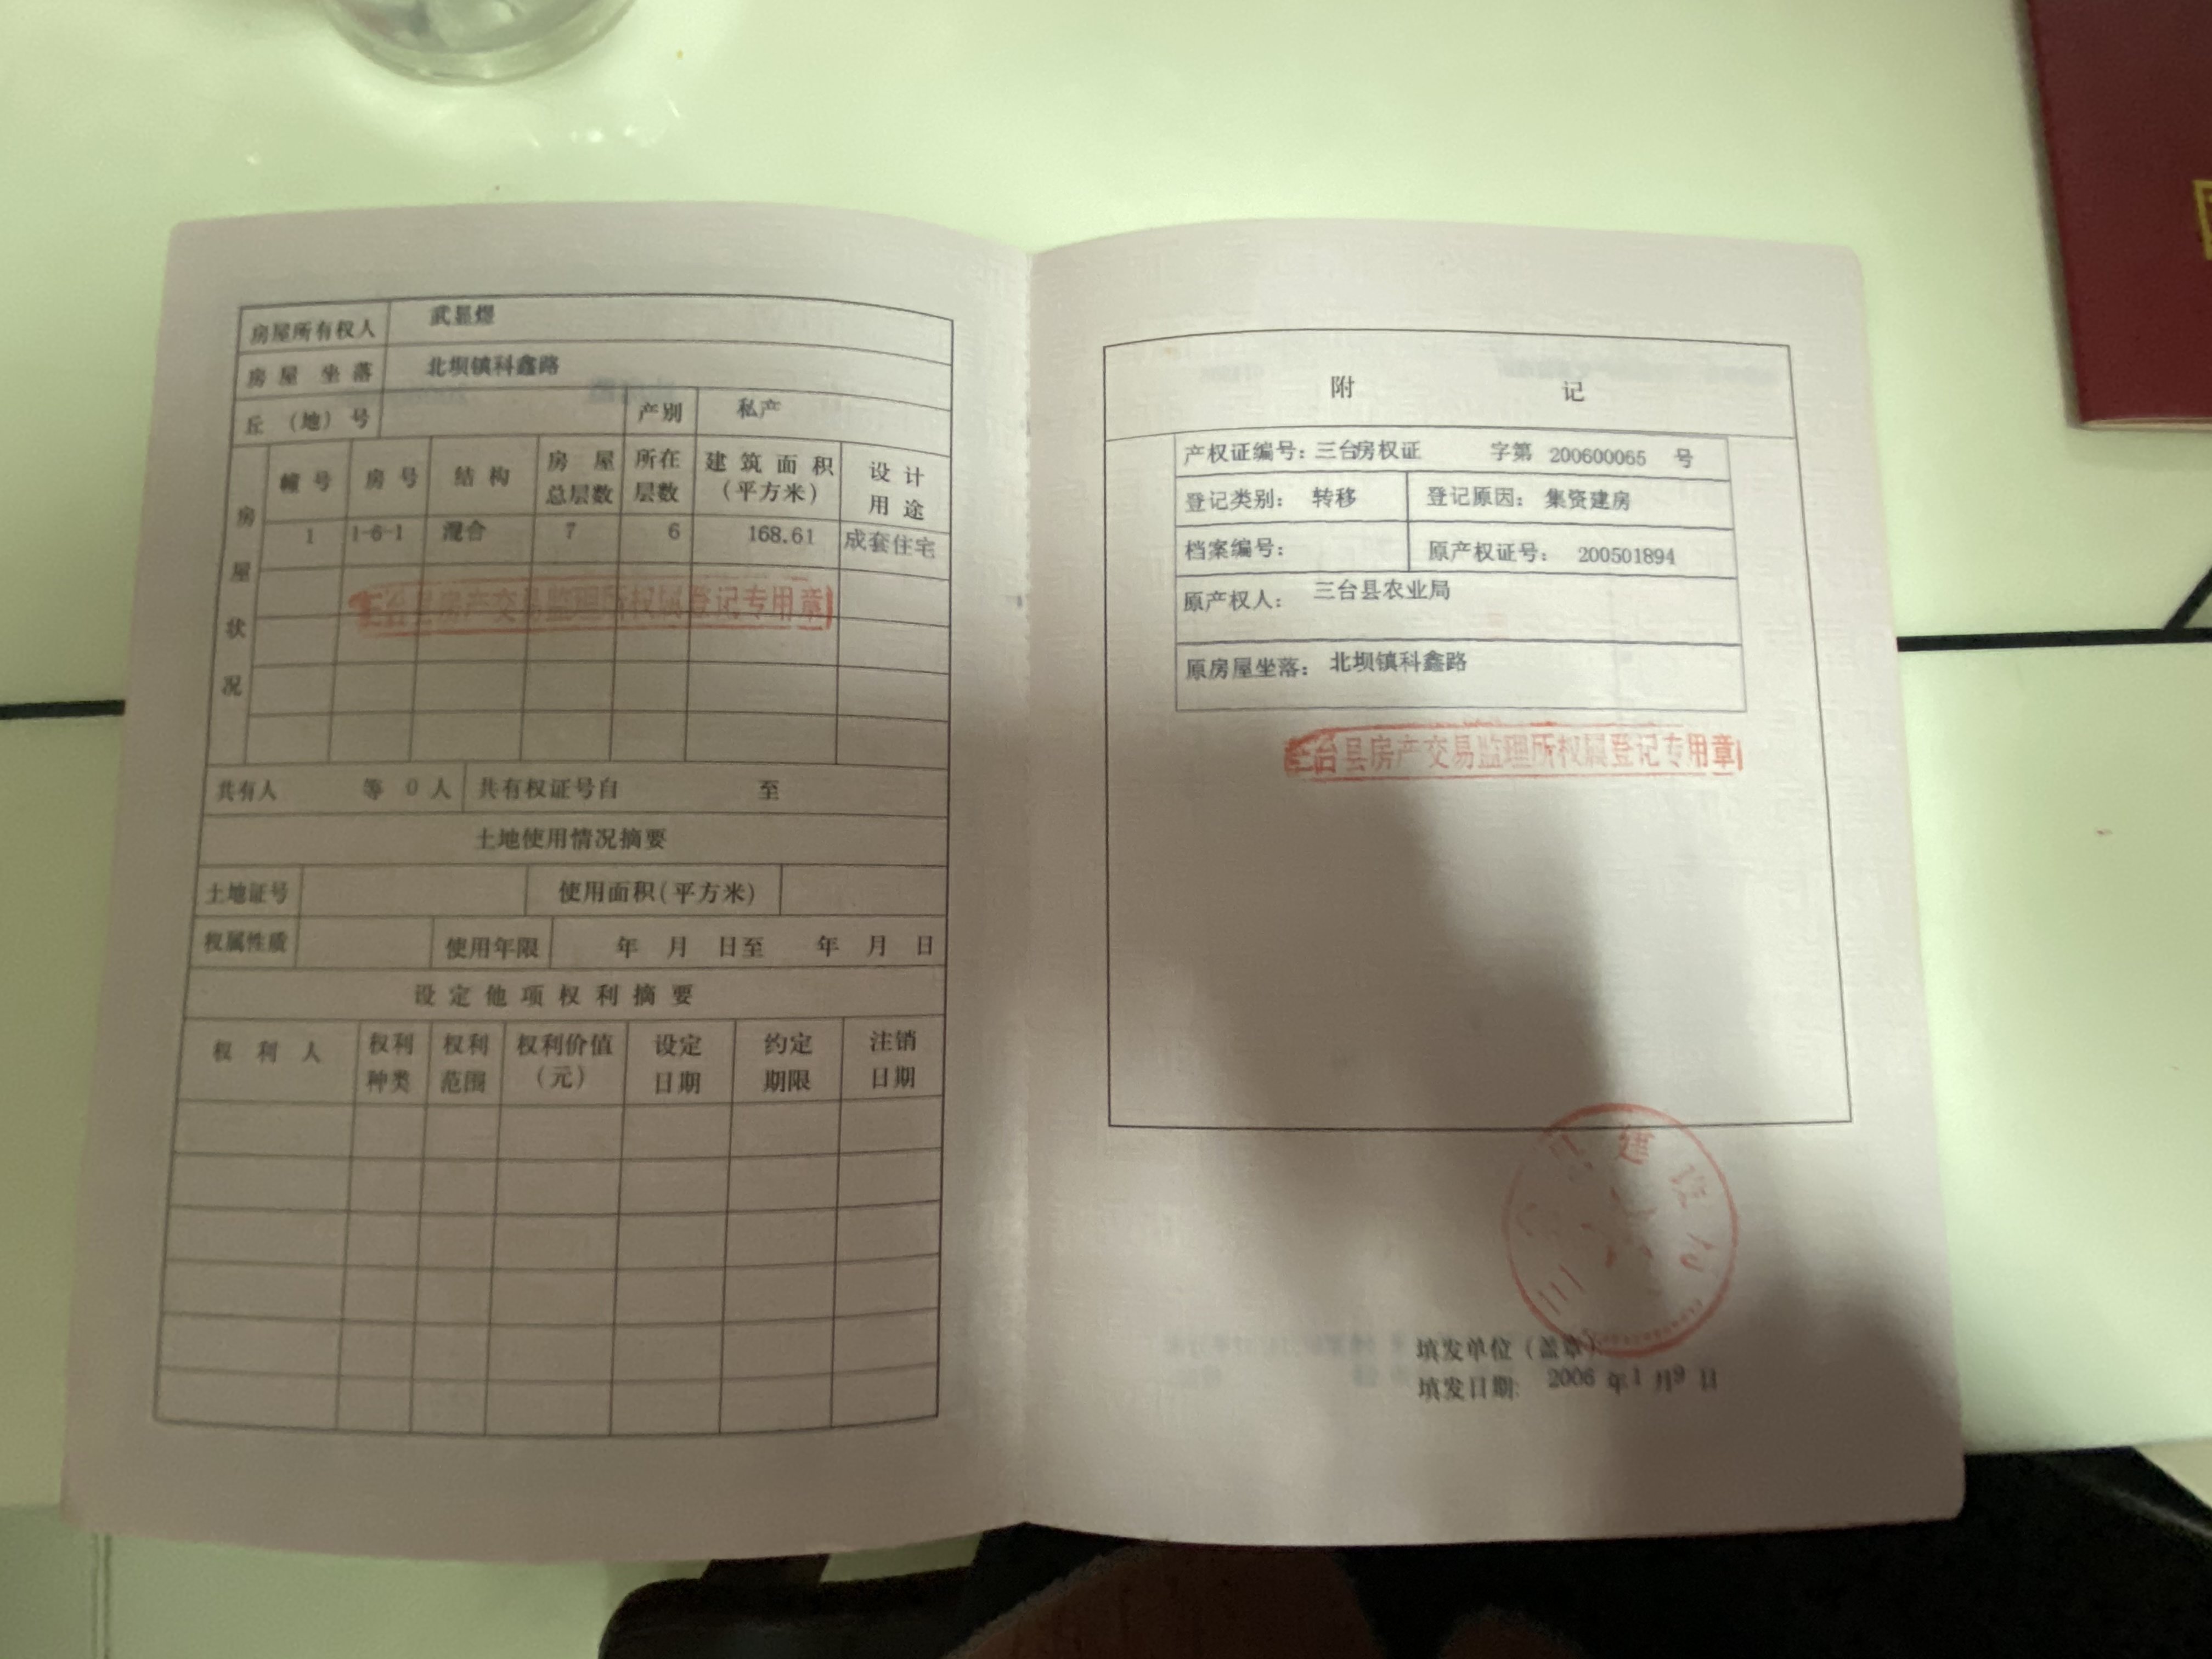 房屋所有权人 武显煜
房屋坐落 北坝镇科鑫路
丘（地）号 产别 私产
房屋状况
幢号 房号 结构 房屋总层数 所在层数 建筑面积（平方米） 设计用途
1 1-6-1 混合 7 6 168.61 成套住宅
三台县房产交易监理所权属登记专用章
共有人 等 0 人 共有权证号自 至
土地使用情况摘要
土地证号 使用面积(平方米)
权属性质 使用年限 年 月 日至 年 月 日
设定他项权利摘要
权利人 权利种类 权利范围 权利价值（元） 设定日期 约定期限 注销日期
附 记
产权证编号：三台房权证 字第 200600065 号
登记类别： 转移 登记原因： 集资建房
档案编号： 原产权证号： 200501894
原产权人： 三台县农业局
原房屋坐落： 北坝镇科鑫路
三台县房产交易监理所权属登记专用章
填发单位（盖章）
填发日期: 2006 年 1 月 9 日